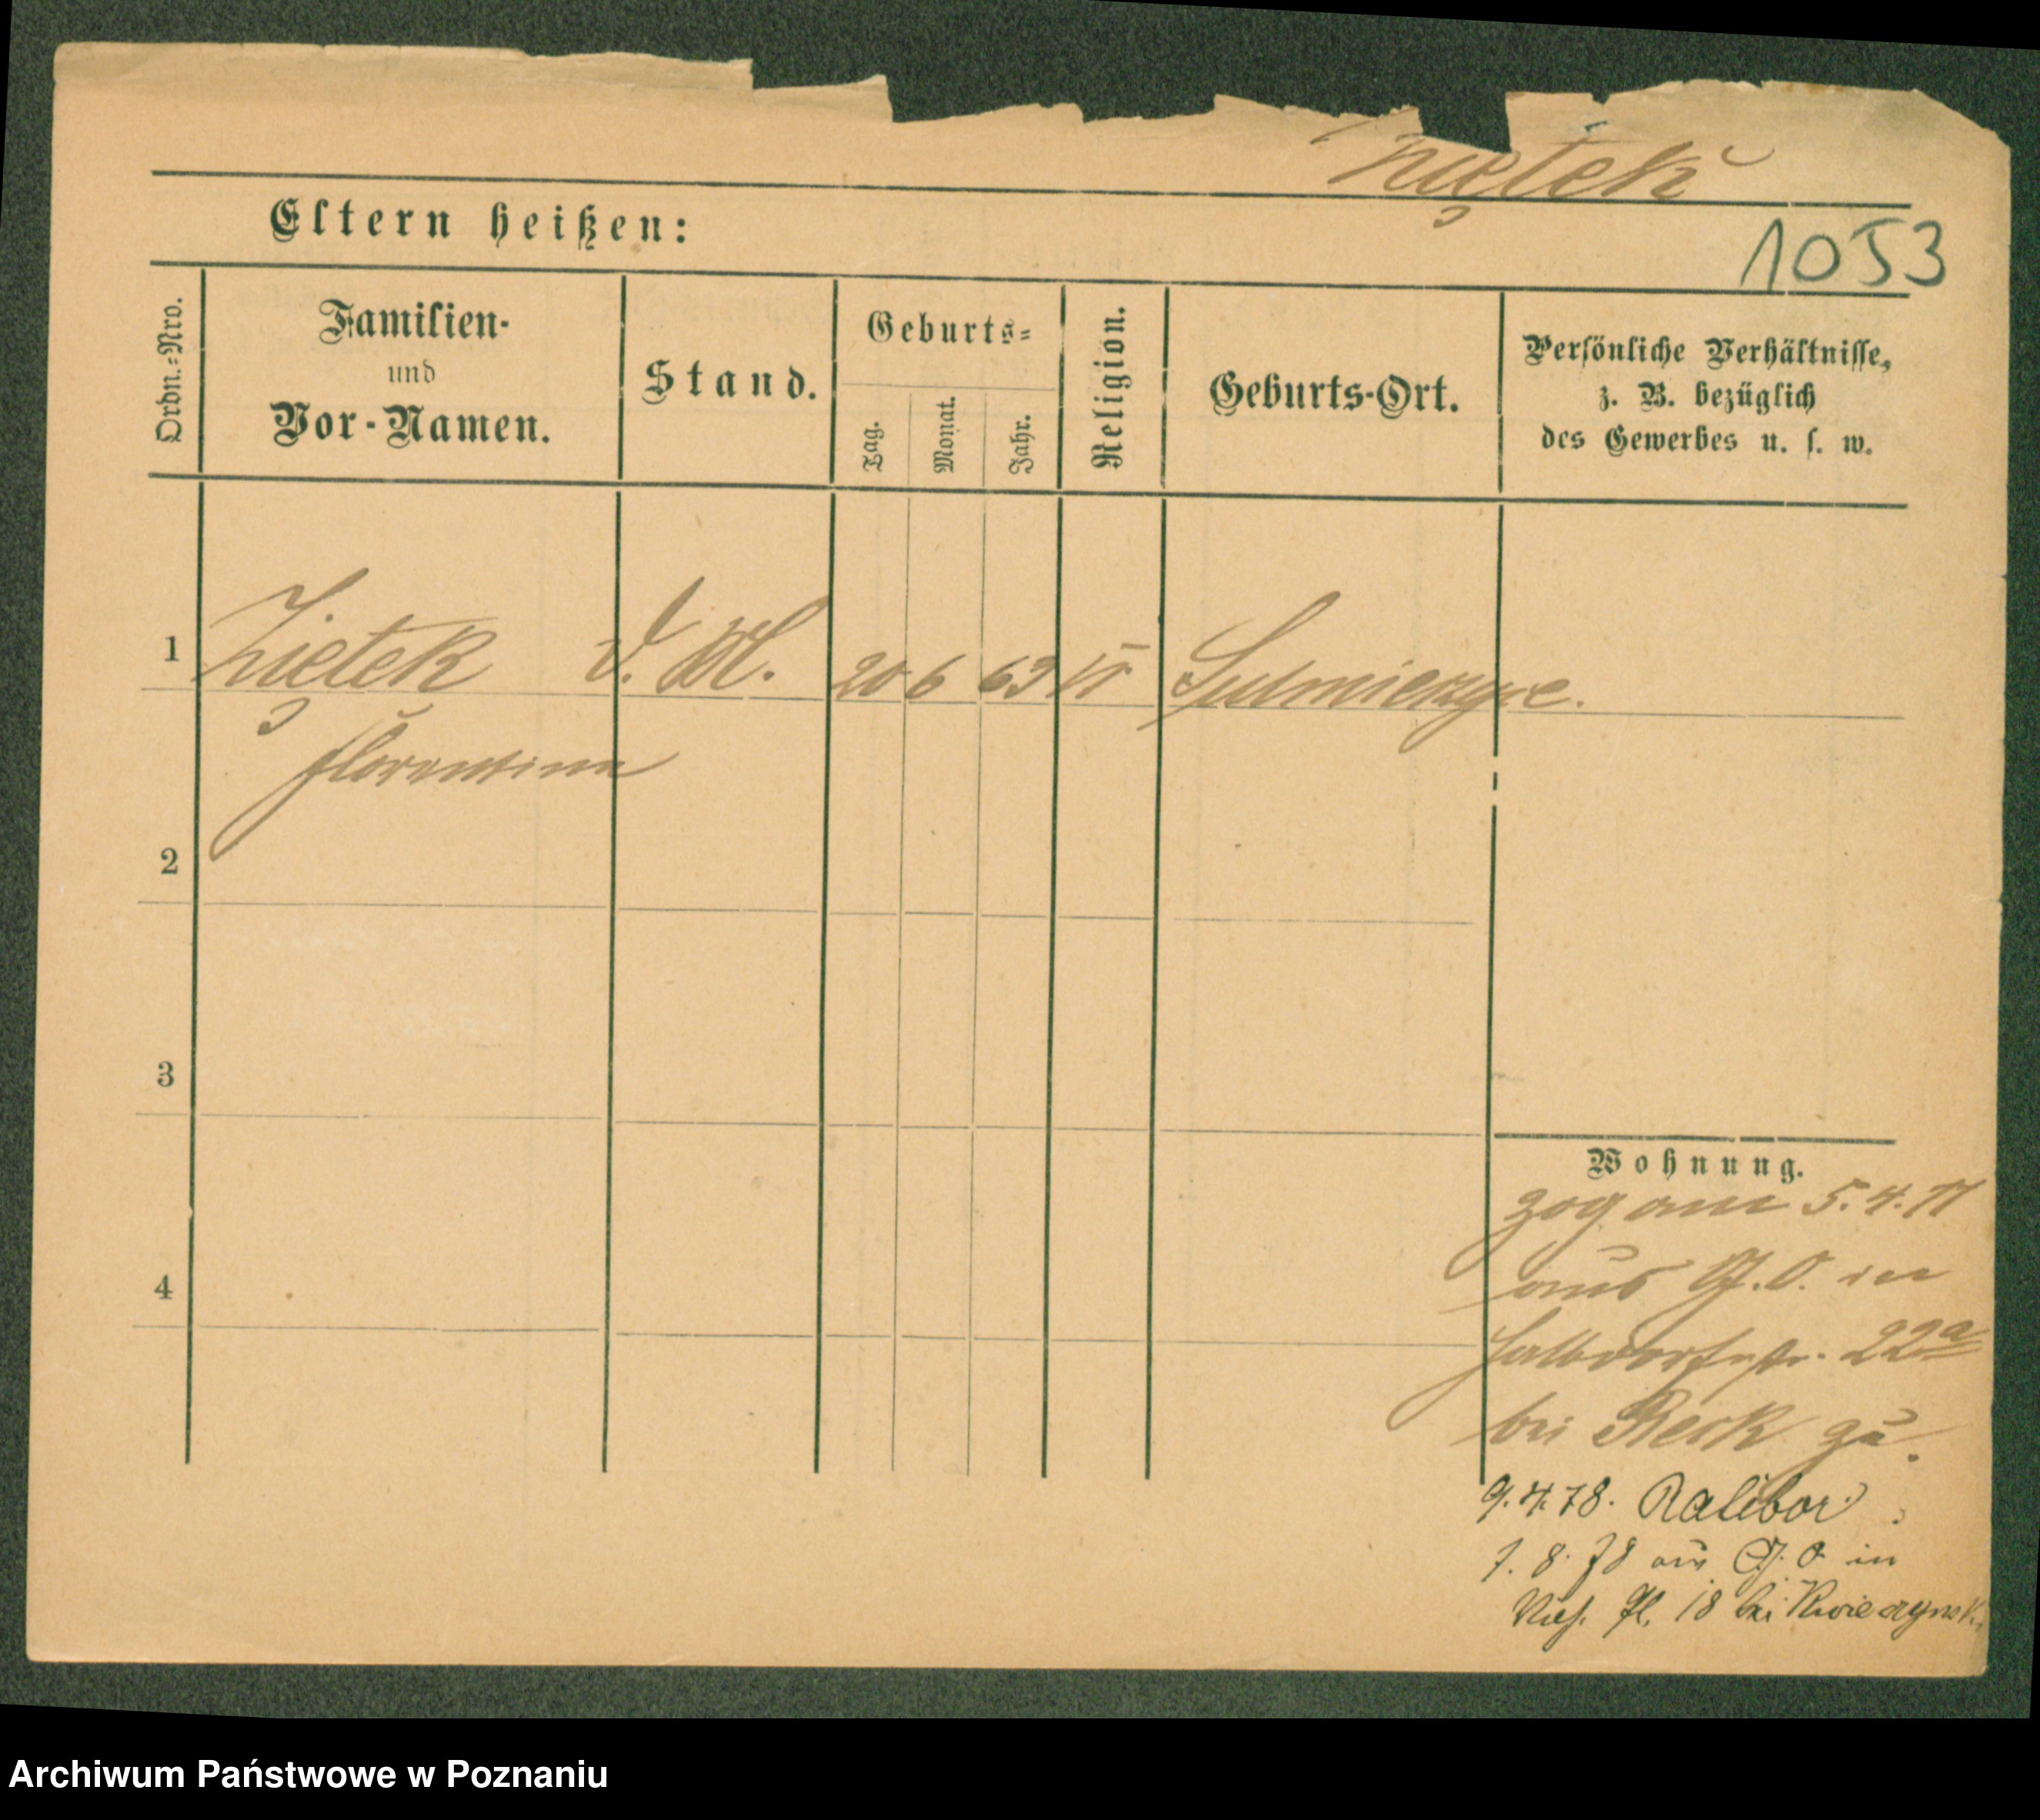 Ziętek
Eltern heißen:
1053
Ordn.-Nro.
Familien-
und
Vor-Namen.
Stand.
Geburts-
Tag.
Monat.
Jahr.
Religion.
Geburts-Ort.
Persönliche Verhältnisse,
z. B. bezüglich
des Gewerbes u. s. w.
1 Ziętek d. M. 20 6 63 K Sulmierzyce.
Florentina
2
3
4
Wohnung.
zog am 5.4.77
aus G. O. in
Halbdorfstr. 22a
bei zu.
9.4.78. Ratibor
7. 8. 78 aus G. O in
18 bei
Archiwum Państwowe w Poznaniu